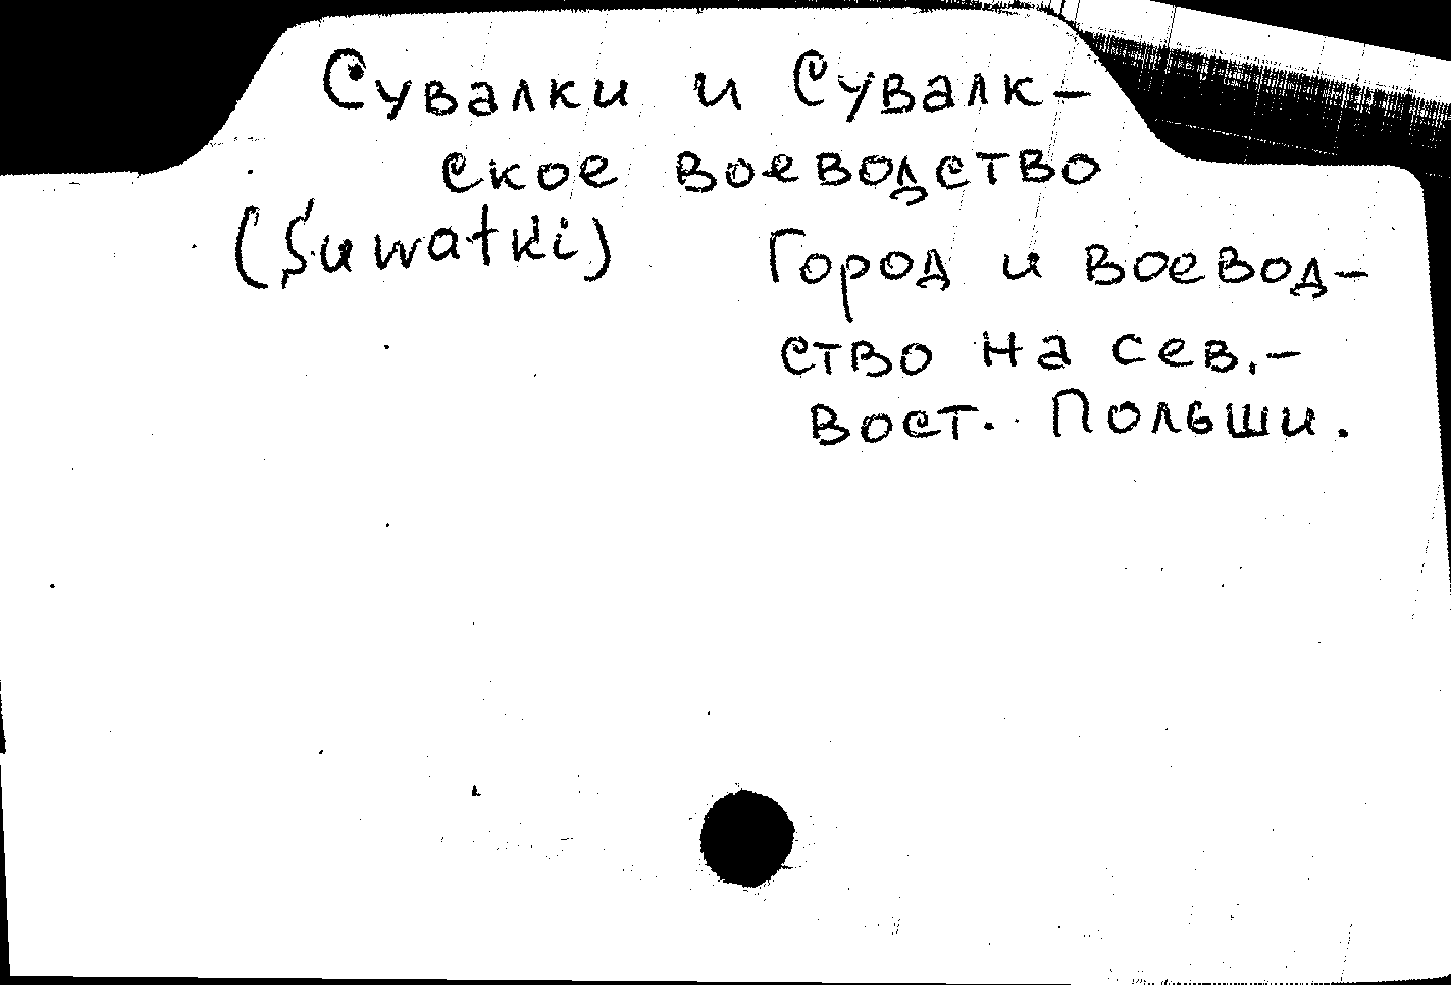 Сувалки и Сувалк-
ское воеводство
(Suwałki)
Город и воевод-
ство на сев.-
вост. Польши.